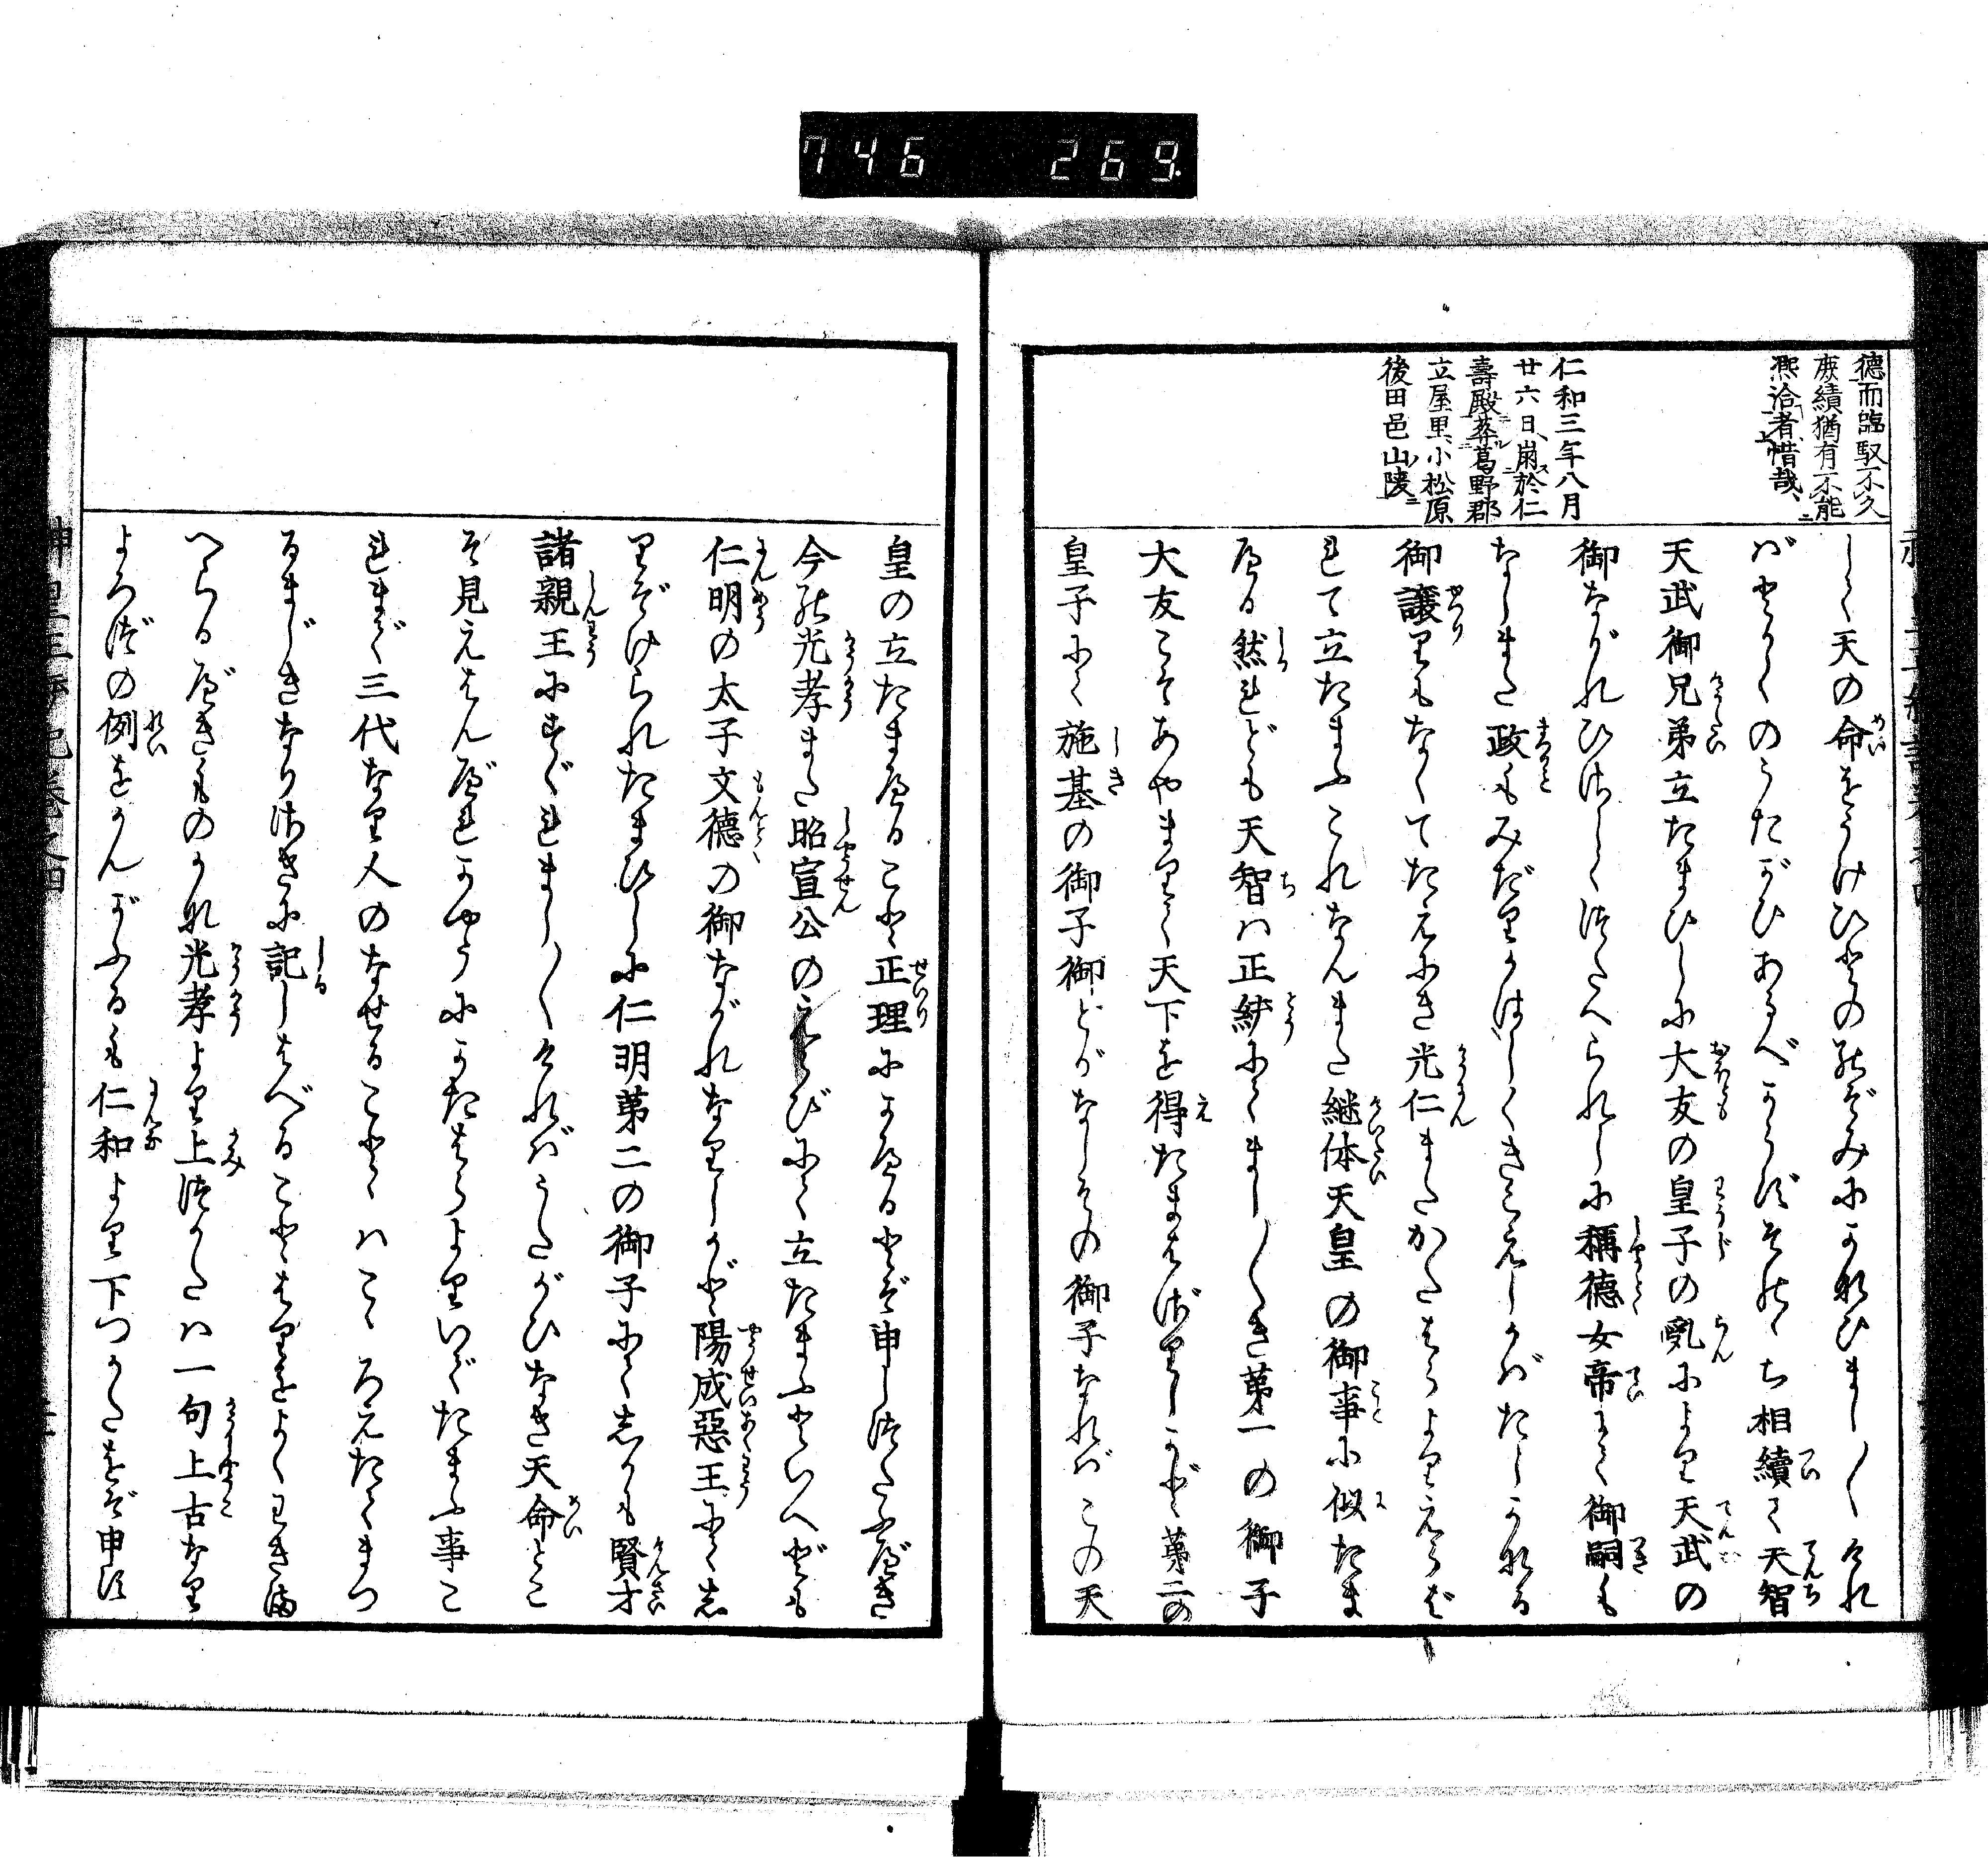 746 269.
德而臨馭不久
庶績猶有不能
熈洽者惜哉
仁和三年八月
廿六日崩於仁
壽殿葬葛野郡
立屋里小松原
後田邑山陵
しく天の命をうけひとののぞみにかなひまし〳〵けれ
バとかくのうたがひあるべからずそののち相續て天智
天武御兄弟立たまひしに大友の皇子の乱によりて天武の
御ながれひさしくつたへられしに稱德女帝にて御嗣も
なしまた政もみだりがはしくきこえしかバたしかなる
御讓りもなくてたえにき光仁またかたはらよりえらば
れて立たまふこれなんまた継体天皇の御事に似たま
へる然れども天智ハ正統にてまし〳〵き第一の御子
大友こそあやまりて天下を得たまはざりしかど第二の
皇子にて施基の御子御とがなしその御子なれバこの天
皇の立たまへること正理にかへるとぞ申しつたふべき
今の光孝また昭宣公のえらびにて立たまふといへども
仁明の太子文德の御ながれなりしかど陽成惡王にて志
りぞけられたまひしに仁明第二の御子にて志かも賢才
諸親王にすぐれまし〳〵けれバうたがひなき天命とこ
そ見えはんべれかやうにかたはらよりいでたまふ事こ
れまで三代なり人のなせることゝハこゝろえたてまつ
るまじきなりさきに記しはべることはりをよくわきま
へらるべきものかな光孝より上つかたハ一向上古なり
よろづの例をかんがふるも仁和より下つかたをぞ申す